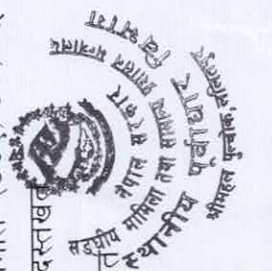 नेपाल सरकार
सङ्घीय मामिला तथा सामान्य प्रशासन मन्त्रालय
स्थानीय पूर्वाधार विभाग
श्रीमहल, पुल्चोक, ललितपुर
दस्तखत